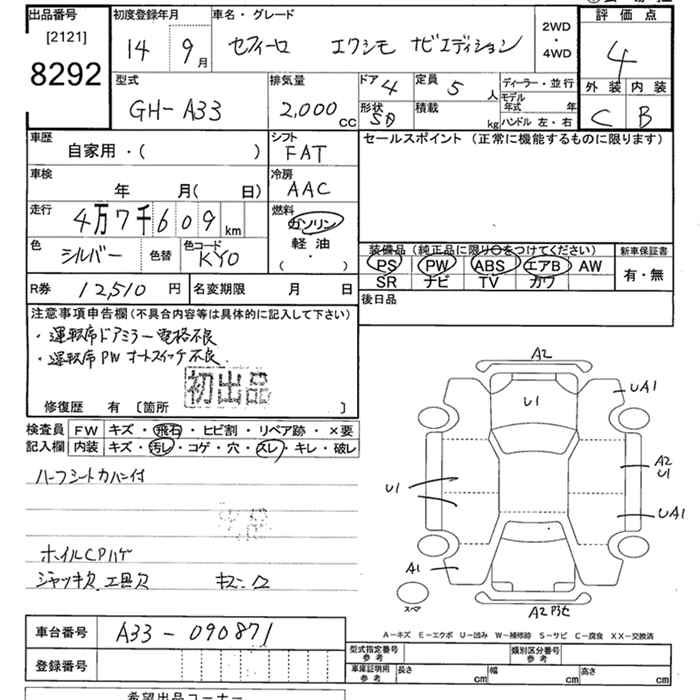 出品番号 初度登録年月 車名・グレード 2WD・4WD 評価点
[2121] 14 9月 セフィーロ エクシモ ナビエディション 4
8292
型式 排気量 ドア 4 定員 5人 ディーラー・並行 外装 内装
GH-A33 2,000cc 形状 SD 積載 kg モデル年式 年 C B
ハンドル 左・右
車歴 シフト セールスポイント (正常に機能するものに限ります)
自家用・( ) FAT
車検 冷房
年 月( 日) AAC
走行 燃料
4万7千609km ガソリン
軽油
( ・ )
色 色替 色コード 装備品(純正品に限り○をつけてください) 新車保証書
シルバー KY0 PS PW ABS エアB AW 有・無
SR ナビ TV カワ
R券 12,510円 名変期限 月 日 後日品
注意事項申告欄(不具合内容等は具体的に記入して下さい)
・運転席ドアミラー電格不良
・運転席PWオートスイッチ不良
初出品
修復歴 有 〔箇所 〕
検査員 FW キズ・飛石・ヒビ割・リペア跡・×要
記入欄 内装 キズ・汚レ・コゲ・穴・スレ・キレ・破レ
A2
U1
UA1
ハーフシートカバー付
U1
A2
U1
UA1
ホイルCPハゲ
ジャッキ欠 工具欠
A1
スペア
A-キズ E-エクボ U-凹み W-補修跡 S-サビ C-腐食 XX-交換済
車台番号 A33-090871
登録番号
型式指定番号 参考 類別区分番号 参考
車庫証明用 参考 長さ cm 幅 cm 高さ cm
希望出品コーナー